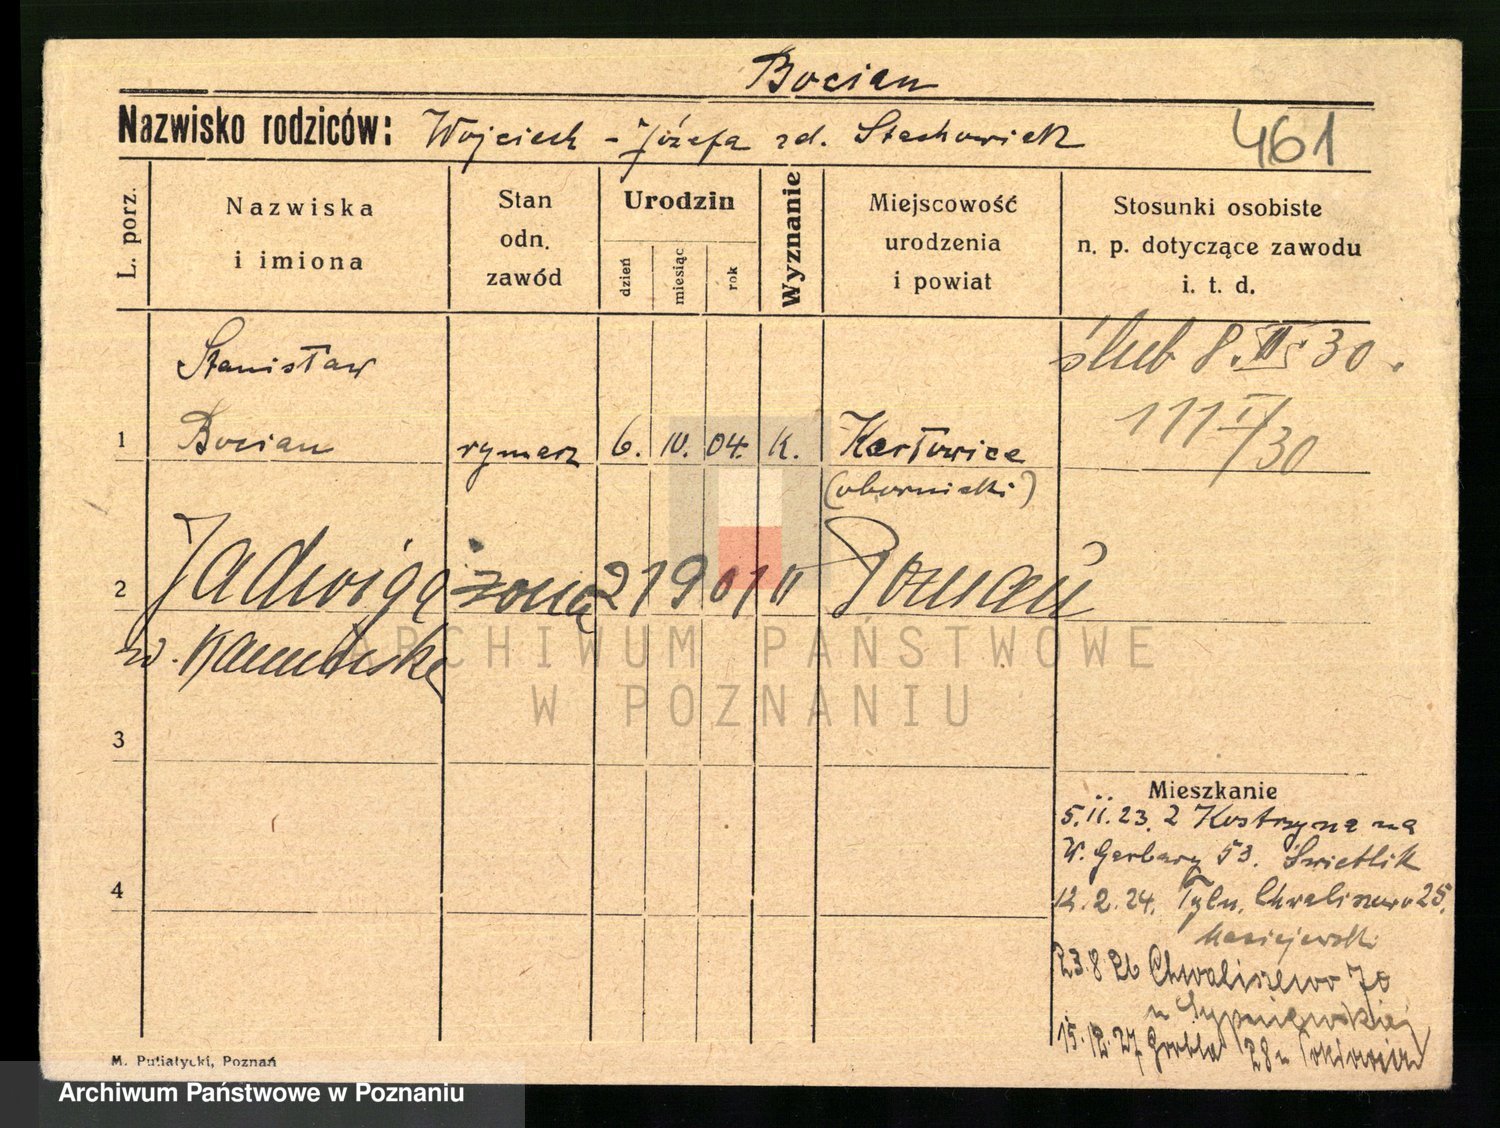 Bocian
Nazwisko rodziców: Wojciech - Józefa zd. Stachowiak
461
L. porz.
Nazwiska
i imiona
Stan
odn.
zawód
Urodzin
dzień
miesiąc
rok
Wyznanie
Miejscowość
urodzenia
i powiat
Stosunki osobiste
n. p. dotyczące zawodu
i. t. d.
ślub 8. II. 30.
111 I/30
Stanisław
1 Bocian rymarz 6. IV. 04. k. Karłowice
(obornicki)
2 Jadwiga żona 2 1 901 Poznań
3
4
Mieszkanie
5.II.23. z Kostrzyna na
W. Garbary 53. Świetlik
12.2.24. Tyln. Chwaliszewo 25.
Maciejewski
23.8 26 Chwaliszewo 70
15.12.27 Grobla 28
M. Putiatycki, Poznań
ARCHIWUM PAŃSTWOWE
W POZNANIU
Archiwum Państwowe w Poznaniu